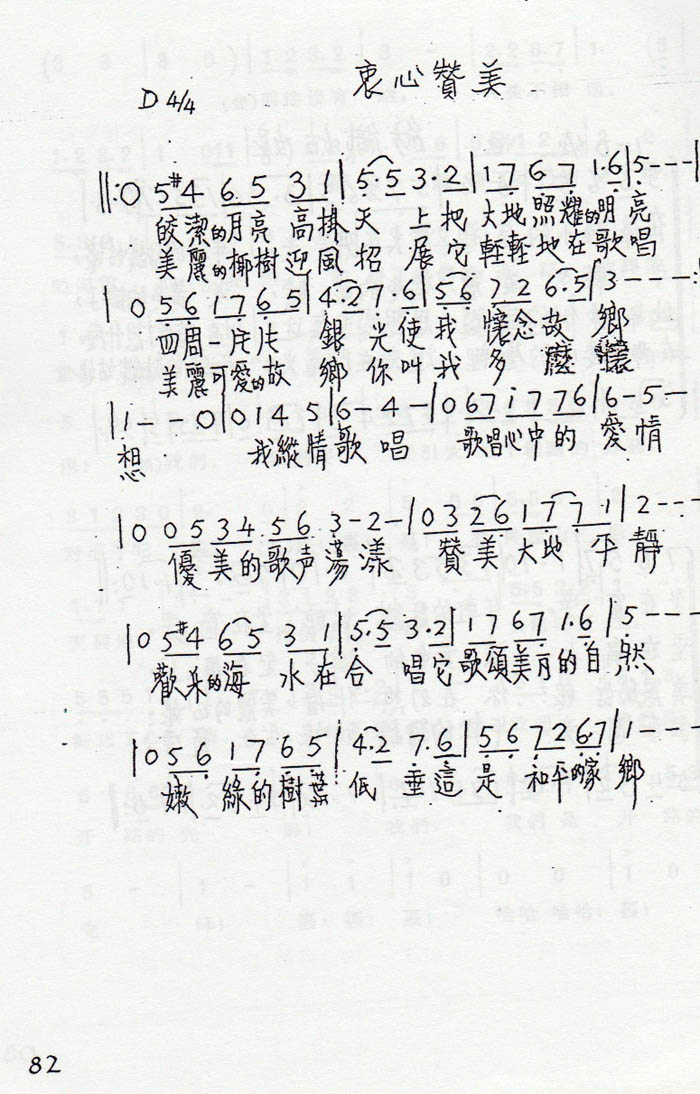 衷心贊美
D 4/4
‖:0 5#4 6.5 3 1|5.5 3.2|1 7 6 7 1.6|5---|
皎潔的月亮 高掛天 上把大地照耀的明亮
美麗的椰樹迎風招 展它輕輕地在歌唱
|0 5 6 1 7 6 5|4.2 7.6|5 6 7 2 6.5|3---:
四周一片片 銀 光使我 懷念故 鄉
美麗可愛的故 鄉 你叫我 多 麼 懷
|1- 0|0 1 4 5|6-4-|0 6 7 i 7 7 6|6-5--
想 我縱情歌唱 歌唱心中的 愛情
|0 0 5 3 4 5 6 3-2-|0 3 2 6 1 7 7 1|2---
優美的歌声蕩漾 贊美大地 平靜
|0 5#4 6 5 3 1|5.5 3.2|1 7 6 7 1.6|5---
歡樂的海 水在合 唱它歌頌美丽的自然
|0 5 6 1 7 6 5|4.2 7.6|5 6 7 2 6 7|1---
嫩 綠的樹葉 低 垂這 是 和平的家 鄉
82